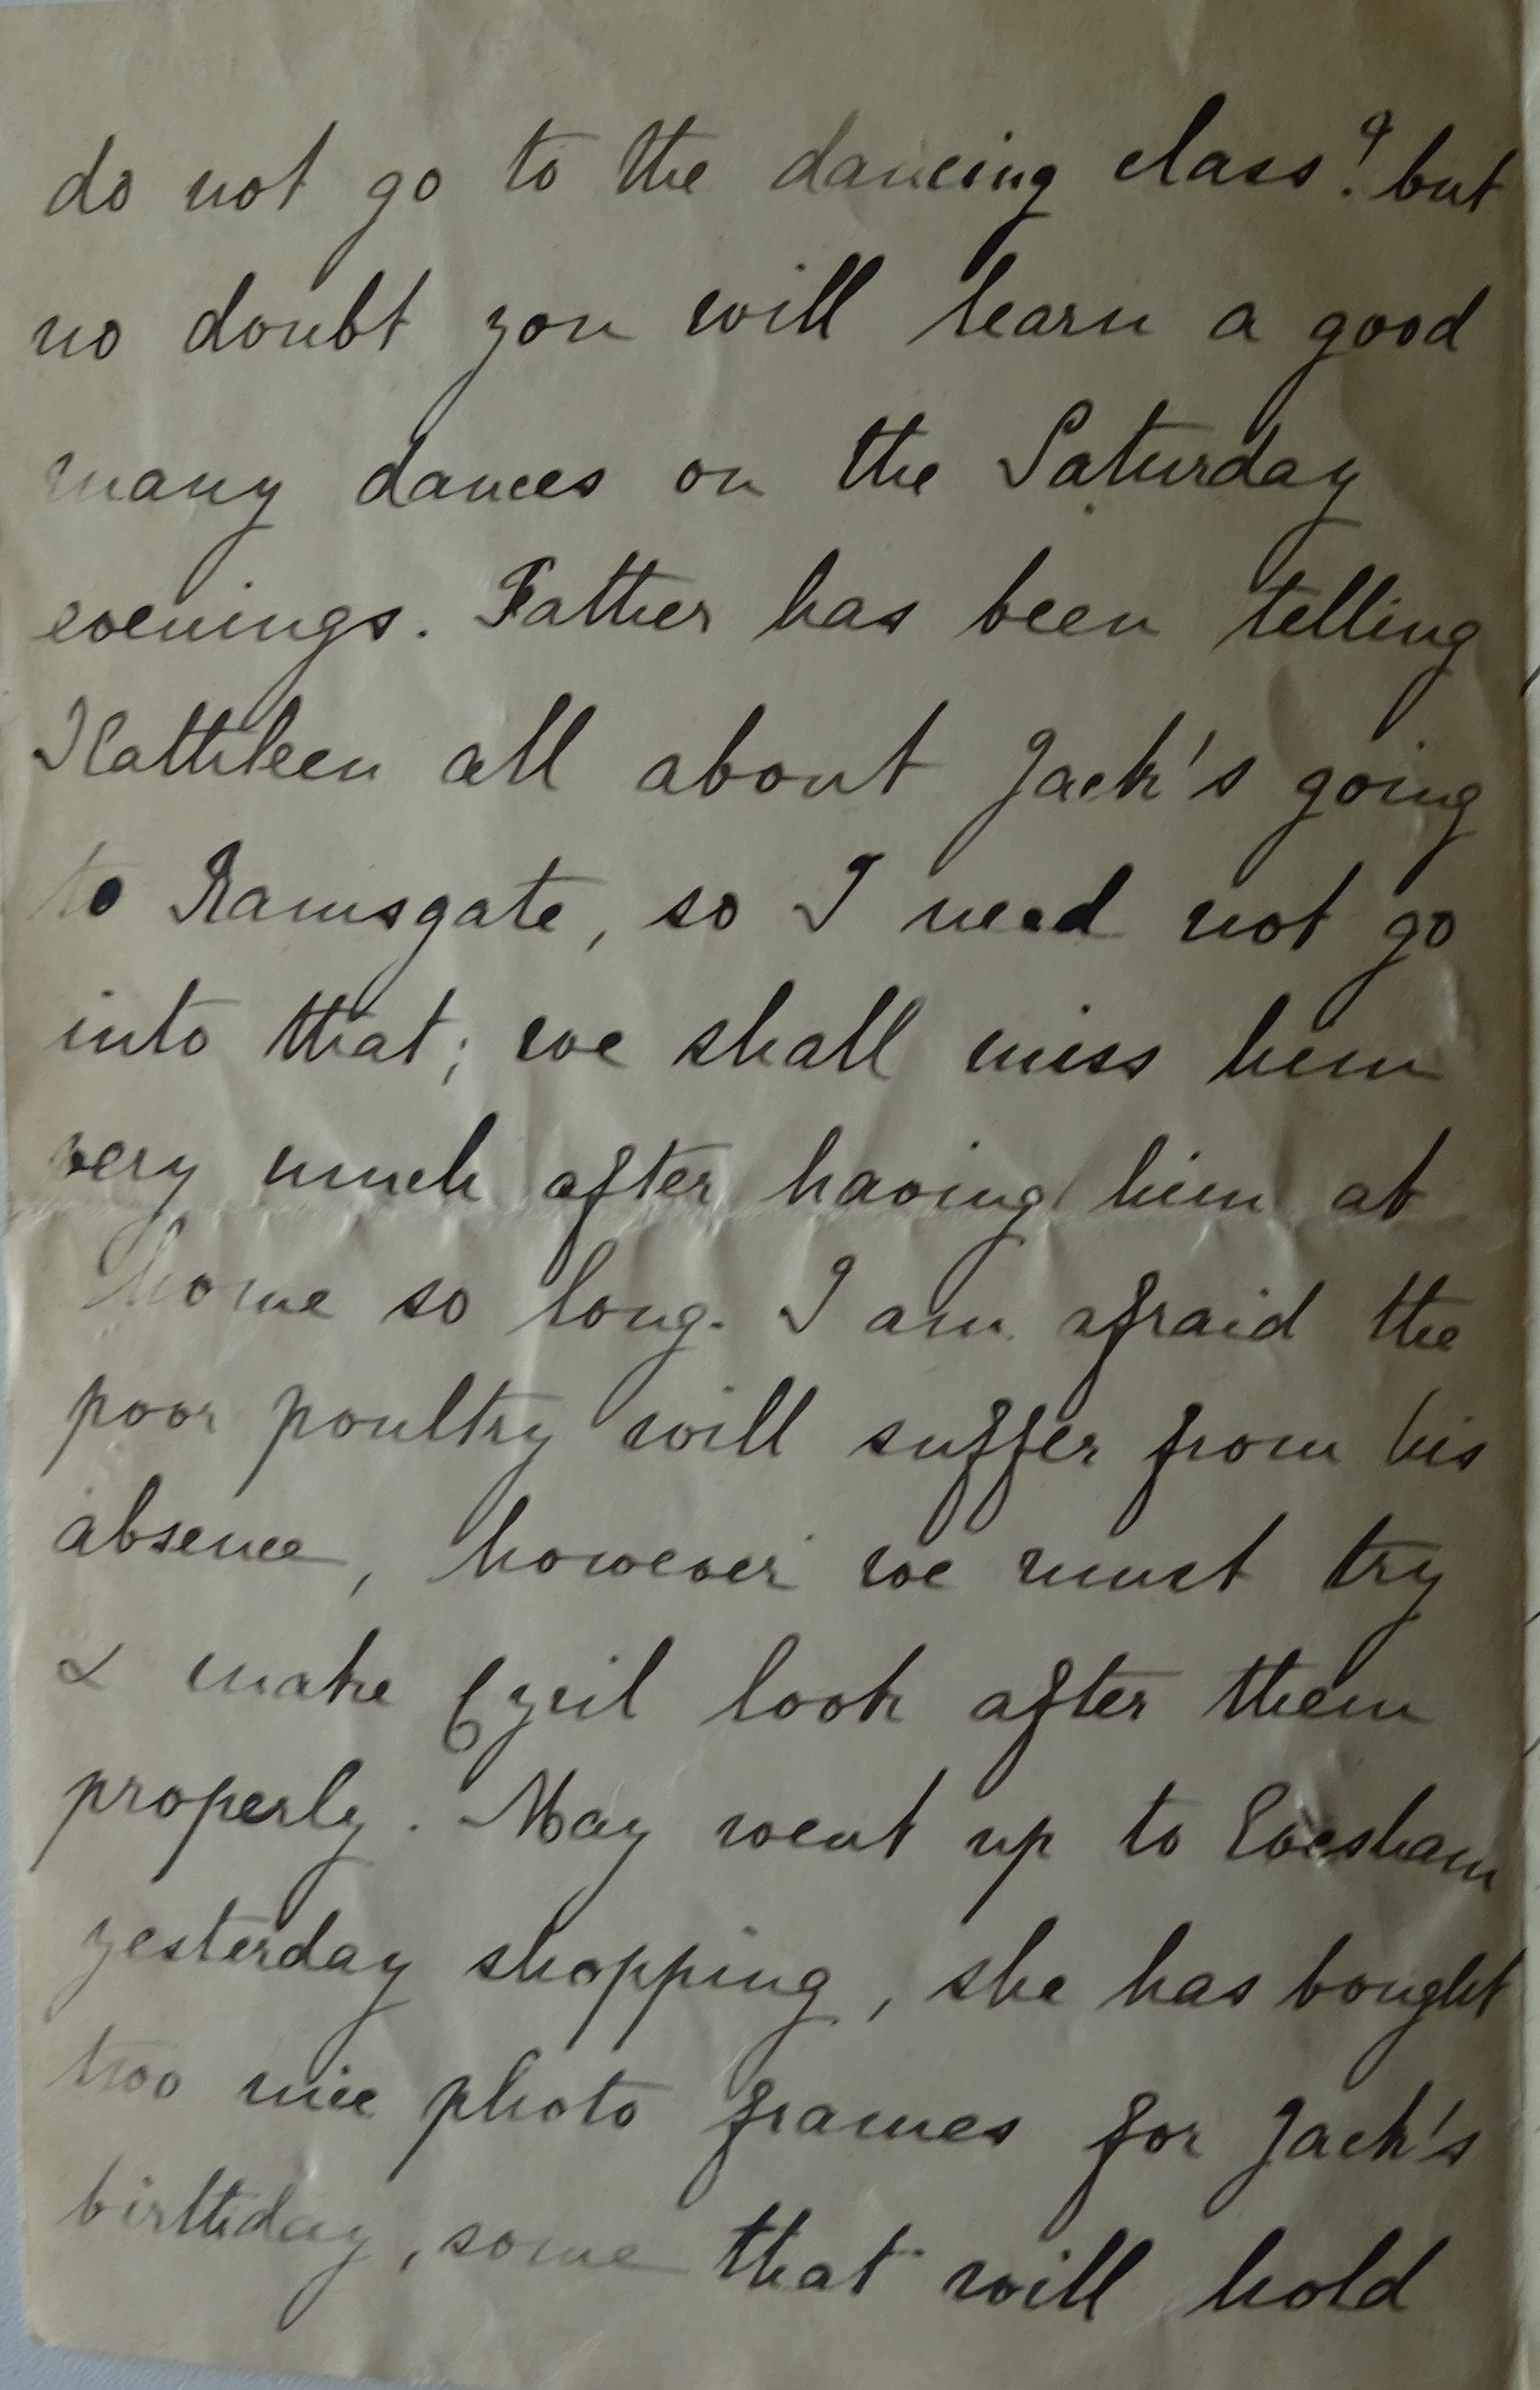 do not go to the dancing class? but
no doubt you will learn a good
many dances on the Saturday
evenings. Father has been telling
Kathleen all about Jack's going
to Ramsgate, so I need not go
into that; we shall miss him
very much after having him at
home so long. I am afraid the
poor poultry will suffer from his
absence, however we must try
& make Cyril look after them
properly. May went up to Evesham
yesterday shopping, she has bought
two nice photo frames for Jack's
birthday, some that will hold